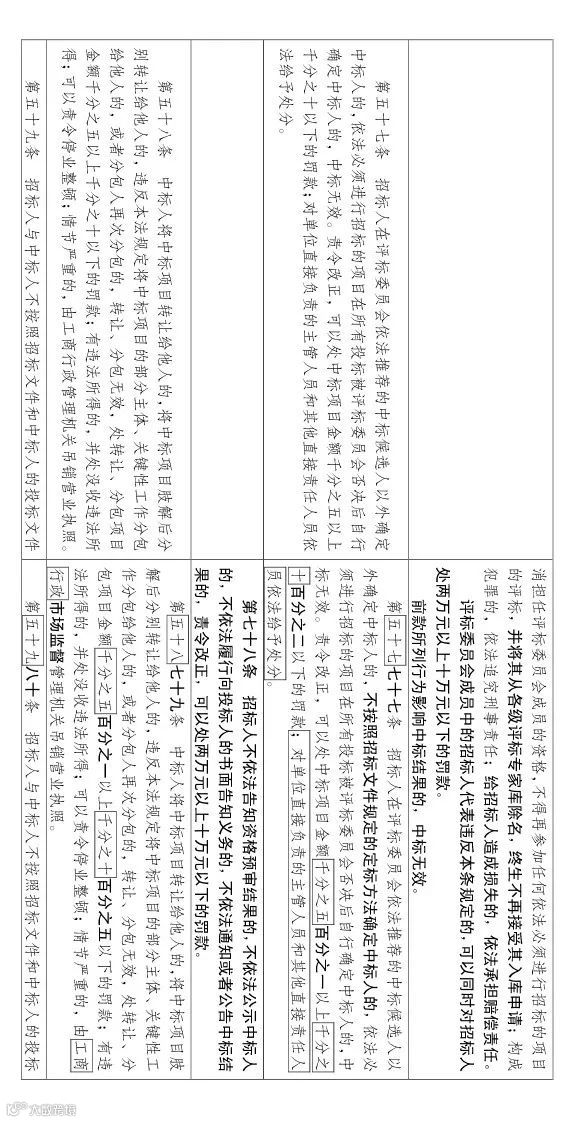 消担任评标委员会成员的资格，不得再参加任何依法必须进行招标的项目
的评标，并将其从各级评标专家库除名，终生不再接受其入库申请；构成
犯罪的，依法追究刑事责任；给招标人造成损失的，依法承担赔偿责任。
评标委员会成员中的招标人代表违反本条规定的，可以同时对招标人
处两万元以上十万元以下的罚款。
前款所列行为影响中标结果的，中标无效。
第五十七条 招标人在评标委员会依法推荐的中标候选人以外确定
中标人的，依法必须进行招标的项目在所有投标被评标委员会否决后自行
确定中标人的，中标无效。责令改正，可以处中标项目金额千分之五以上
千分之十以下的罚款；对单位直接负责的主管人员和其他直接责任人员依
法给予处分。
第五十七七十七条 招标人在评标委员会依法推荐的中标候选人以
外确定中标人的，不按照招标文件规定的定标方法确定中标人的，依法必
须进行招标的项目在所有投标被评标委员会否决后自行确定中标人的，中
标无效。责令改正，可以处中标项目金额千分之五百分之一以上千分之
十百分之二以下的罚款；对单位直接负责的主管人员和其他直接责任人
员依法给予处分。
第七十八条 招标人不依法告知资格预审结果的，不依法公示中标人
的，不依法履行向投标人的书面告知义务的，不依法通知或者公告中标结
果的，责令改正，可以处两万元以上十万元以下的罚款。
第五十八条 中标人将中标项目转让给他人的，将中标项目肢解后分
别转让给他人的，违反本法规定将中标项目的部分主体、关键性工作分包
给他人的，或者分包人再次分包的，转让、分包无效，处转让、分包项目
金额千分之五以上千分之十以下的罚款；有违法所得的，并处没收违法所
得；可以责令停业整顿；情节严重的，由工商行政管理机关吊销营业执照。
第五十八七十九条 中标人将中标项目转让给他人的，将中标项目肢
解后分别转让给他人的，违反本法规定将中标项目的部分主体、关键性工
作分包给他人的，或者分包人再次分包的，转让、分包无效，处转让、分
包项目金额千分之五百分之一以上千分之十百分之五以下的罚款；有违
法所得的，并处没收违法所得；可以责令停业整顿；情节严重的，由工商
行政市场监督管理机关吊销营业执照。
第五十九条 招标人与中标人不按照招标文件和中标人的投标文件
第五十九八十条 招标人与中标人不按照招标文件和中标人的投标
大数跨境